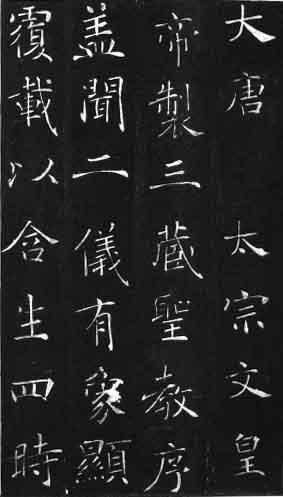 大唐 太宗文皇
帝製三蔵聖教序
盖聞二儀有象顯
覆載以含生四時